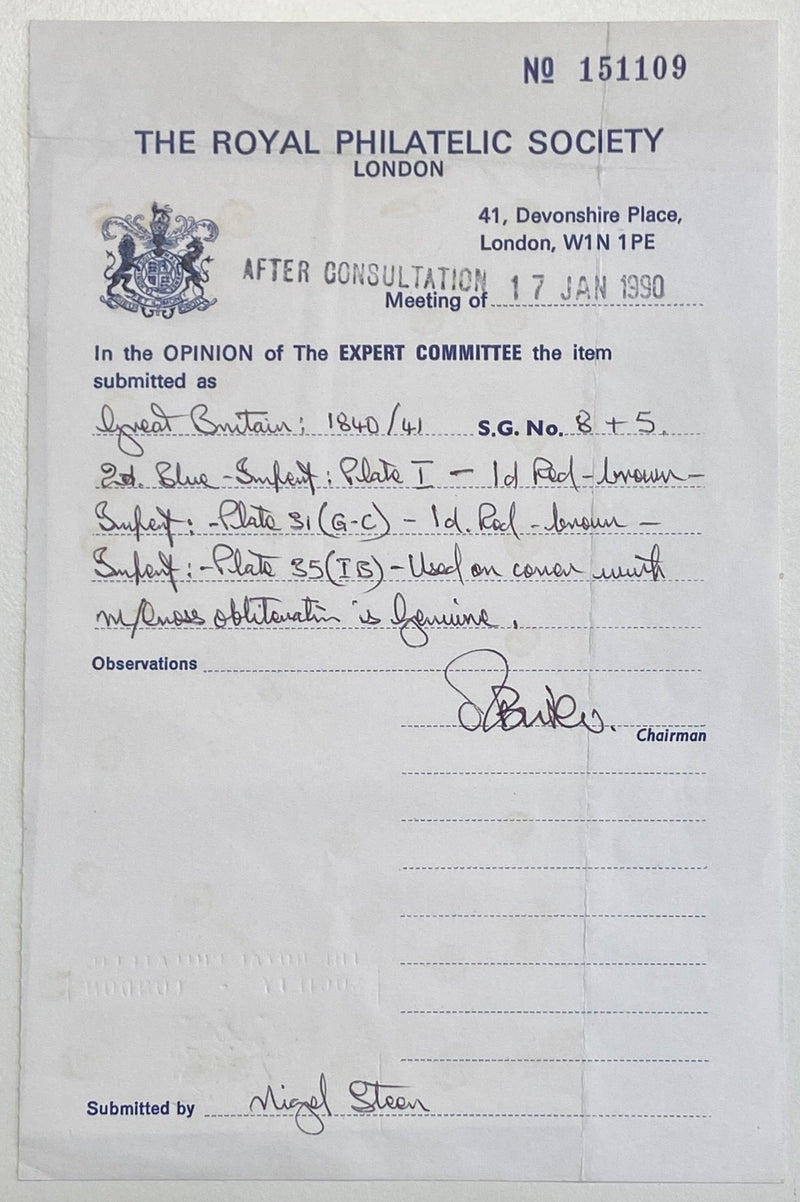 No 151109
THE ROYAL PHILATELIC SOCIETY
LONDON
41, Devonshire Place,
London, W1N 1PE
AFTER CONSULTATION
Meeting of 17 JAN 1990
In the OPINION of The EXPERT COMMITTEE the item
submitted as
Great Britain: 1840/41 S.G. No. 8 + 5.
2d. Blue - Imperf: Plate I - 1d Red-brown -
Imperf: - Plate 31 (G-C) - 1d. Red-brown -
Imperf: - Plate 35 (I B) - Used on cover with
m/Cross obliteration is Genuine.
Observations
Chairman
Submitted by Nigel Steen